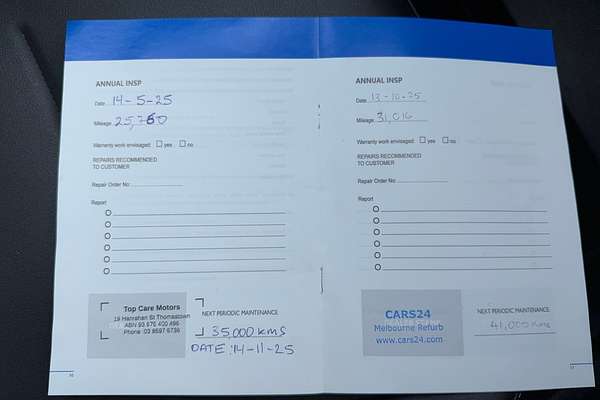 ANNUAL INSP
Date 14-5-25
Mileage 25,760
Warranty work envisaged: yes no
REPAIRS RECOMMENDED
TO CUSTOMER
Repair Order No:
Report
Top Care Motors
19 Hanrahan St Thomastown
ABN 93 676 400 496
Phone :03 8597 6736
NEXT PERIODIC MAINTENANCE
35,000 kms
DATE :14-11-25
ANNUAL INSP
Date 13-10-25
Mileage 31,016
Warranty work envisaged: yes no
REPAIRS RECOMMENDED
TO CUSTOMER
Repair Order No:
Report
CARS24
Melbourne Refurb
www.cars24.com
NEXT PERIODIC MAINTENANCE
41,000 Kms